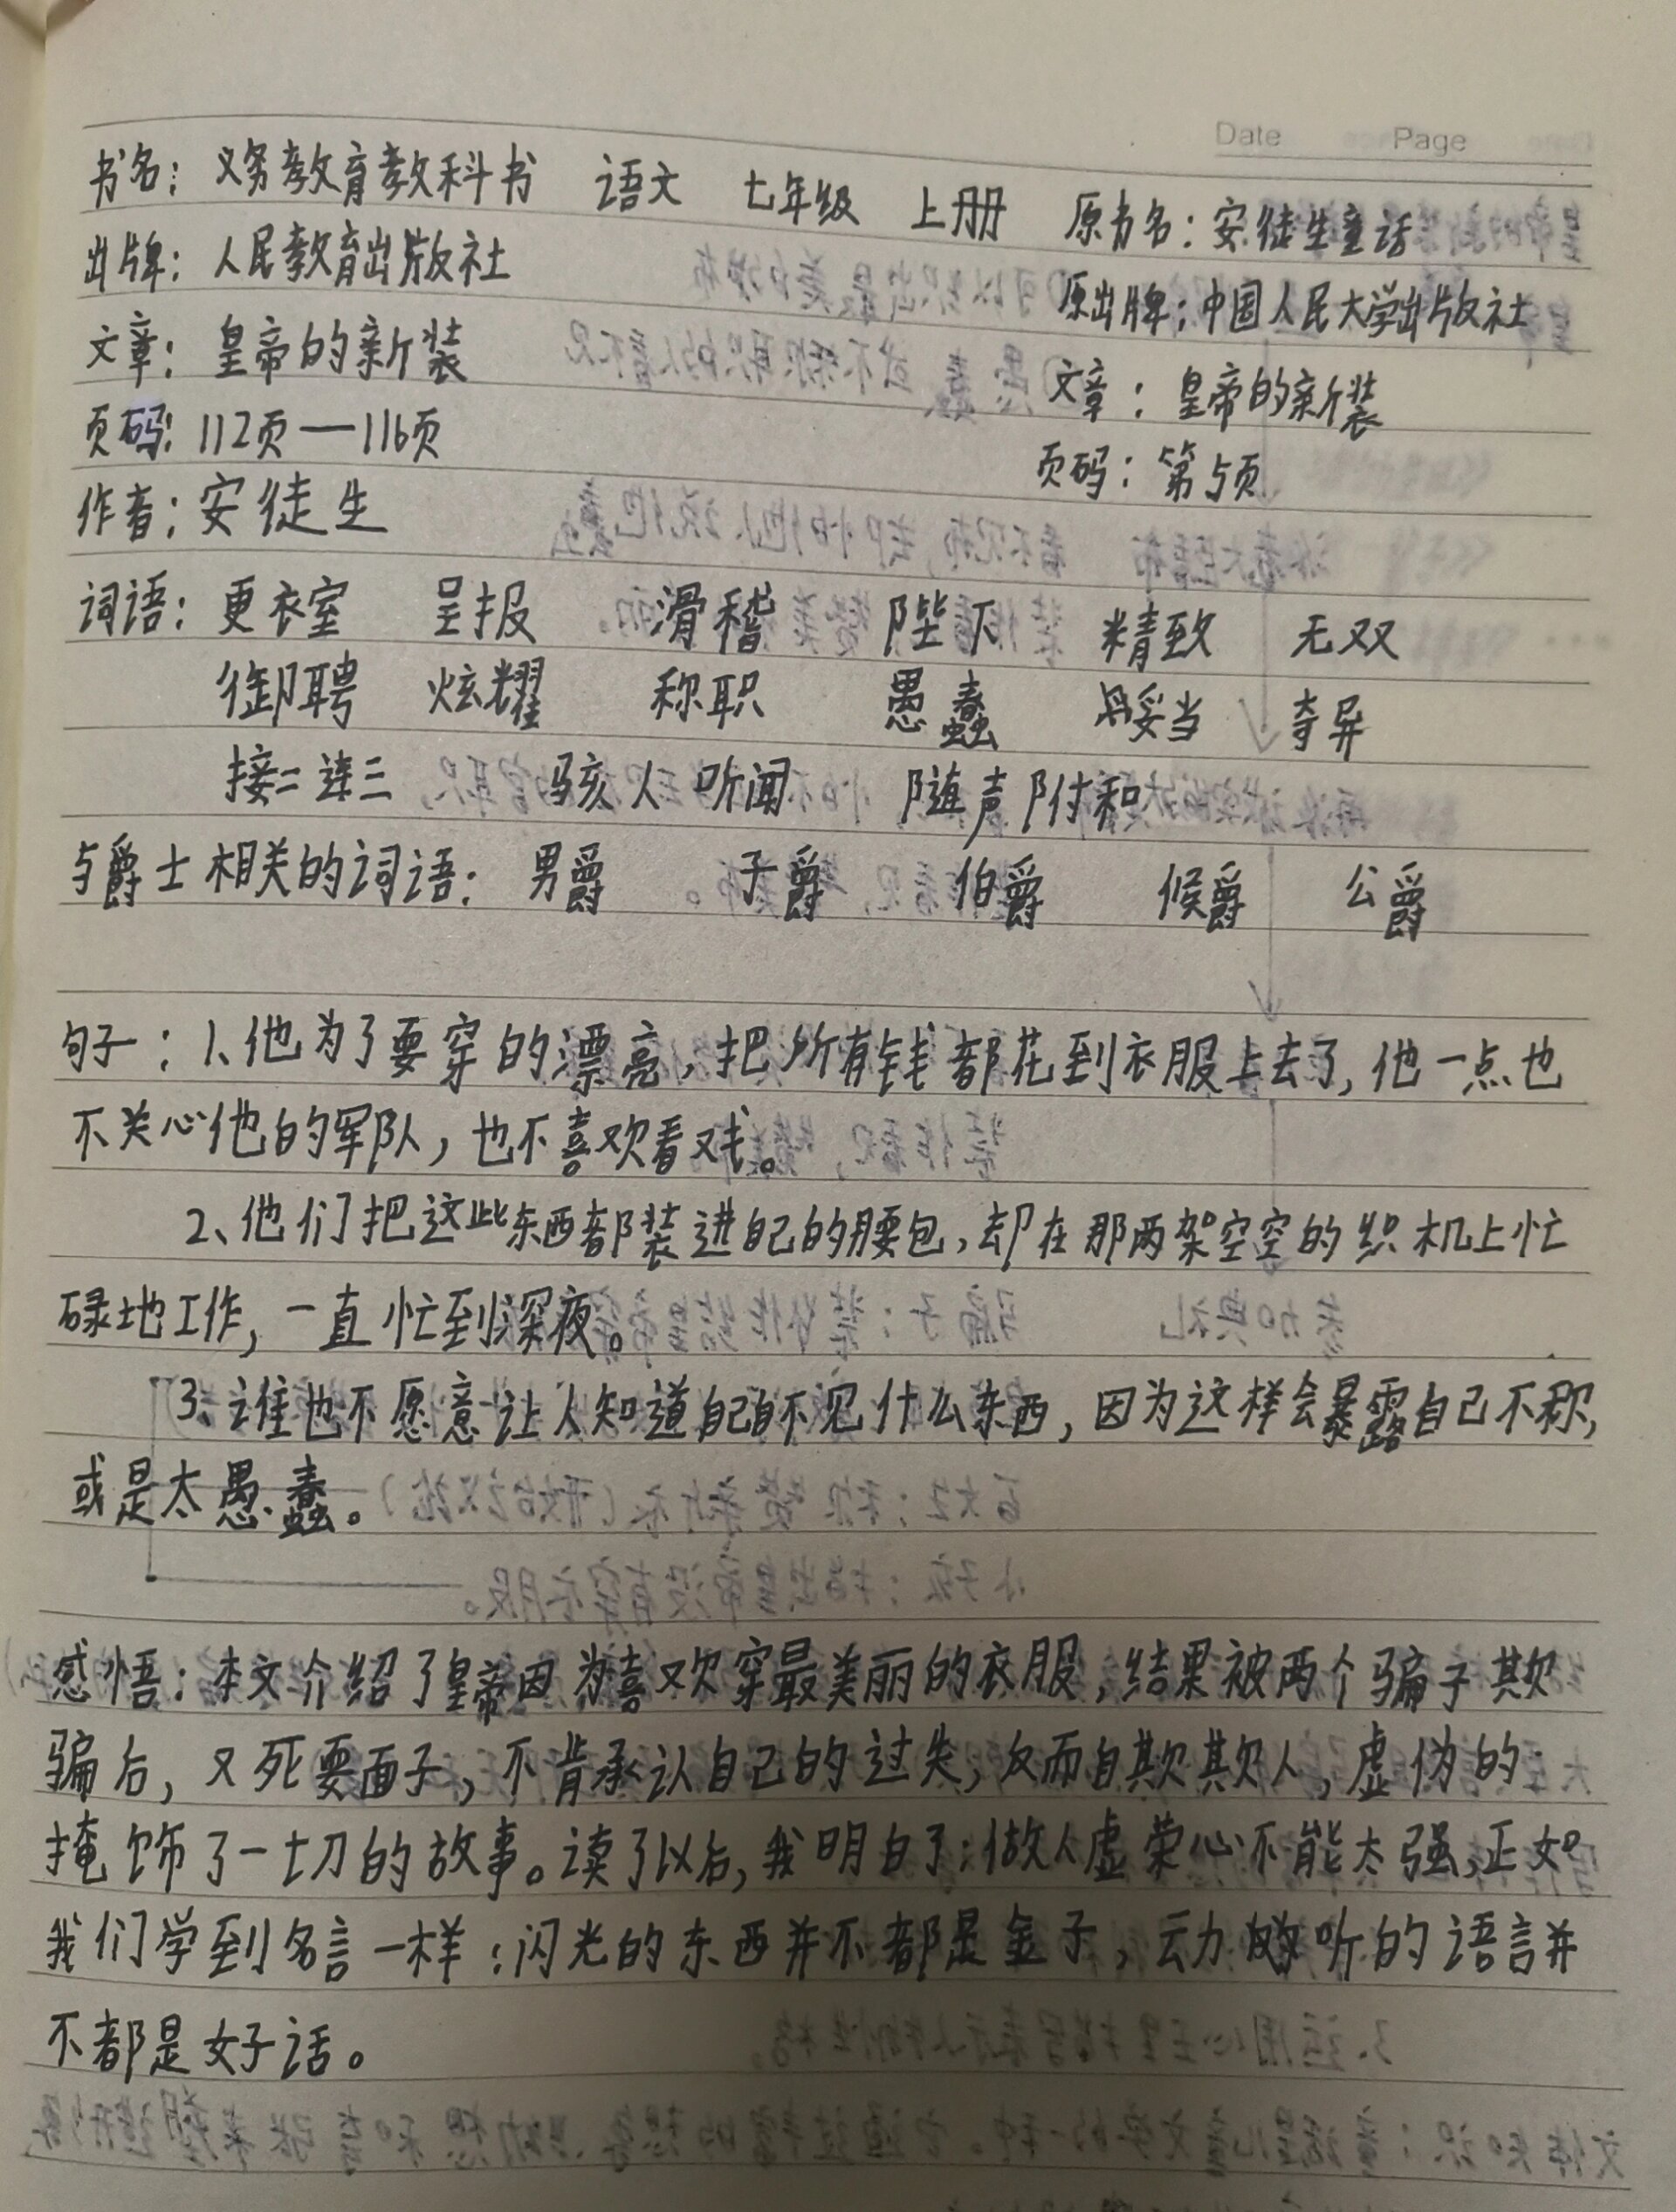 Date Page
书名：义务教育教科书 语文 七年级 上册 原书名：安徒生童话
出牌：人民教育出版社 原出牌：中国人民大学出版社
文章：皇帝的新装 文章：皇帝的新装
页码：112页—116页 页码：第5页
作者：安徒生
词语：更衣室 呈报 滑稽 陛下 精致 无双
御聘 炫耀 称职 愚蠢 妥当 奇异
接二连三 骇人听闻 随声附和
与爵士相关的词语：男爵 子爵 伯爵 候爵 公爵
句子：1、他为了要穿的漂亮，把所有钱都花到衣服上去了，他一点也
不关心他的军队，也不喜欢看戏。
2、他们把这些东西都装进自己的腰包，却在那两架空空的织机上忙
碌地工作，一直忙到深夜。
3、谁也不愿意让人知道自己不见什么东西，因为这样会暴露自己不称，
或是太愚蠢。
感悟：本文介绍了皇帝因为喜欢穿最美丽的衣服，结果被两个骗子欺
骗后，又死要面子，不肯承认自己的过失，反而自欺欺人，虚伪的
掩饰了一切的故事。读了以后，我明白了：做人虚荣心不能太强，正如
我们学到名言一样：闪光的东西并不都是金子，动听的语言并
不都是好话。